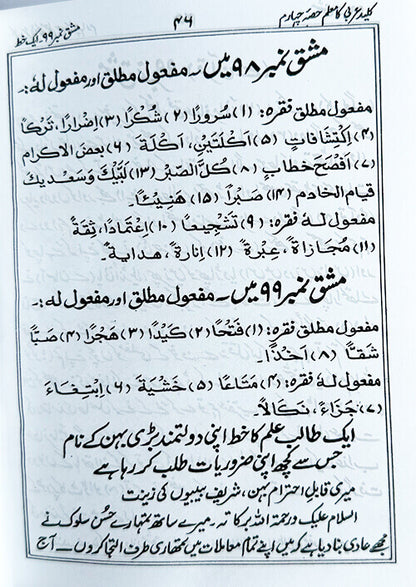 کلید عربی کا معلم حصہ چہارم ۴۶ مشق نمبر ۹۹، ایک خط
مشق نمبر ۹۸ میں ۔ مفعول مطلق اور مفعول لہٗ:۔
مفعول مطلق فقرہ: (۱) سُرورًا (۲) شُکْرًا (۳) اِضْرارًا، تَرْکًا
(۴) اِکْتِشَافَاتٍ (۵) اَکْلَتَیْنِ، اَکْلَةً (۶) بعضَ الاکرام
(۷) اَفْصَحَ خطابٍ (۸) کُلَّ الصَّبْرِ (۱۳) لَبَّیْکَ وَ سَعْدیک
قیامَ الخادم (۱۴) صَبْرًا (۱۵) هَنِیْئًا۔
مفعول لہٗ فقرہ: (۹) تَشْجِیعاً (۱۰) اِعْتِمَادًا، ثِقَةً
(۱۱) مُجَازَاةً، عِبْرَةً (۱۲) اِنارةً، هدایةً۔
مشق نمبر ۹۹ میں ۔ مفعول مطلق اور مفعول لہٗ:۔
مفعول مطلق فقرہ: (۱) فَتْحًا (۲) کَیْدًا (۳) هَجْرًا (۴) صَبًّا
شَقًّا (۸) اَخْذًا۔
مفعول لہٗ فقرہ: (۴) مَتَاعًا (۵) خَشْیَةَ (۶) اِبْتِغَاءَ
(۷) جَزَاءً، نَکَالاً۔
ایک طالب علم کا خط اپنی دولتمند بڑی بہن کے نام
جس سے کچھ اپنی ضروریات طلب کر رہا ہے
میری قابلِ احترام بہن، شریف بیبیوں کی زینت
السلام علیک و رحمۃ اللہ برکاتہ، میرے ساتھ تمہارے حُسنِ سلوک نے
مجھے عادی بنا دیا ہے کہ میں اپنے تمام معاملات میں تمھاری طرف التجا کروں ــ آج